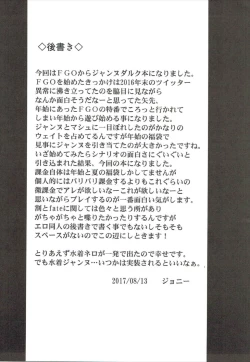 ◇後書き◇
今回はFGOからジャンヌダルク本になりました。
FGOを始めたきっかけは2016年末のツイッター
異常に沸き立ってたのを脇目に見ながら
なんか面白そうだなーと思ってた矢先、
年始にあったFGOの特番でころっと行かれて
しまい年始から遊び始める事になりました。
ジャンヌとマシュに一目ぼれしたのがかなりの
ウェイトを占めてるんですが年始の福袋で
見事にジャンヌを引き当てたのが大きかったですね。
いざ始めてみたらシナリオの面白さにぐいぐいと
引き込まれた結果、今回の本になりました。
課金自体は年始と夏の福袋しかしてませんが
個人的にはバリバリ課金するよりもこれぐらいの
微課金でアレが欲しいなーこれが欲しいなーと
思いながらプレイするのが一番面白い気がします。
割とfateに関しては色々と思う所があり
がちゃがちゃと喋りたかったりするんですが
エロ同人の後書きで書く事でもないしそもそも
スペースがないのでこの辺にしときます！
とりあえず水着ネロが一発で出たので幸せです。
でも水着ジャンヌ…いつかは実装されるといいなぁ。
2017/08/13　ジョニー